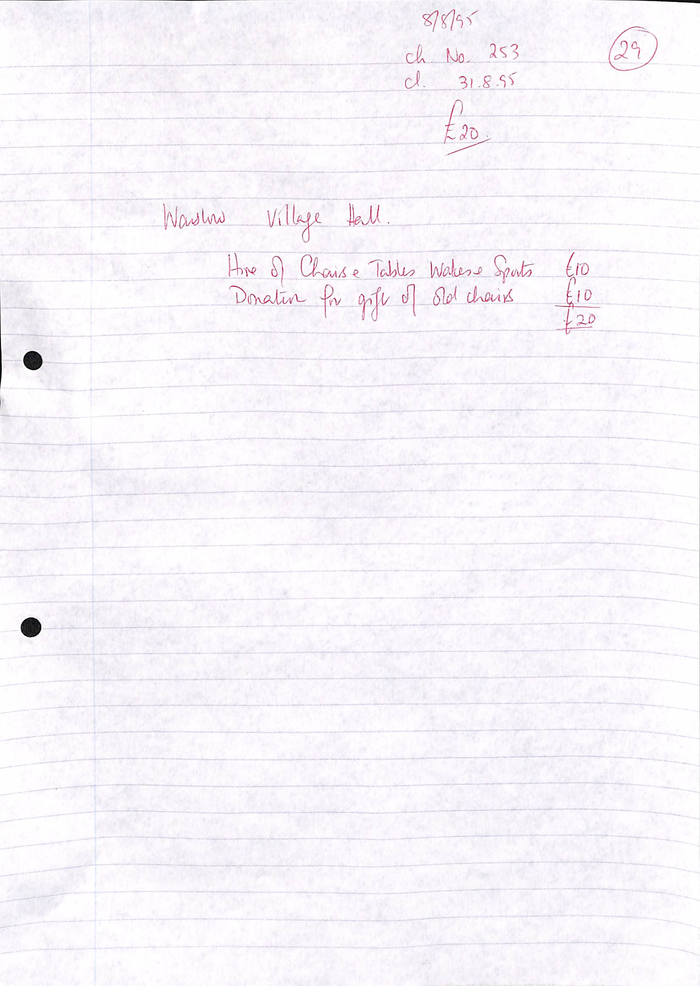 8/8/95
29
ch No. 253
cl. 31.8.95
£20.
Warslow Village Hall.
Hire of Chairs & Tables Wakes & Sports £10
Donation for gift of old chairs £10
£20